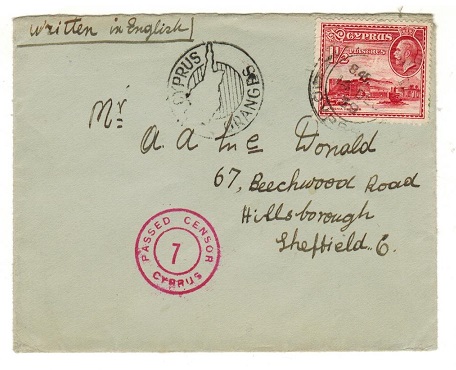 Written in English
CYPRUS
1½ PIASTRES
CYPRUS
ORANGES
Mr
A. A. McDonald
67, Beechwood Road
Hillsborough
Sheffield. 6.
PASSED CENSOR
7
CYPRUS